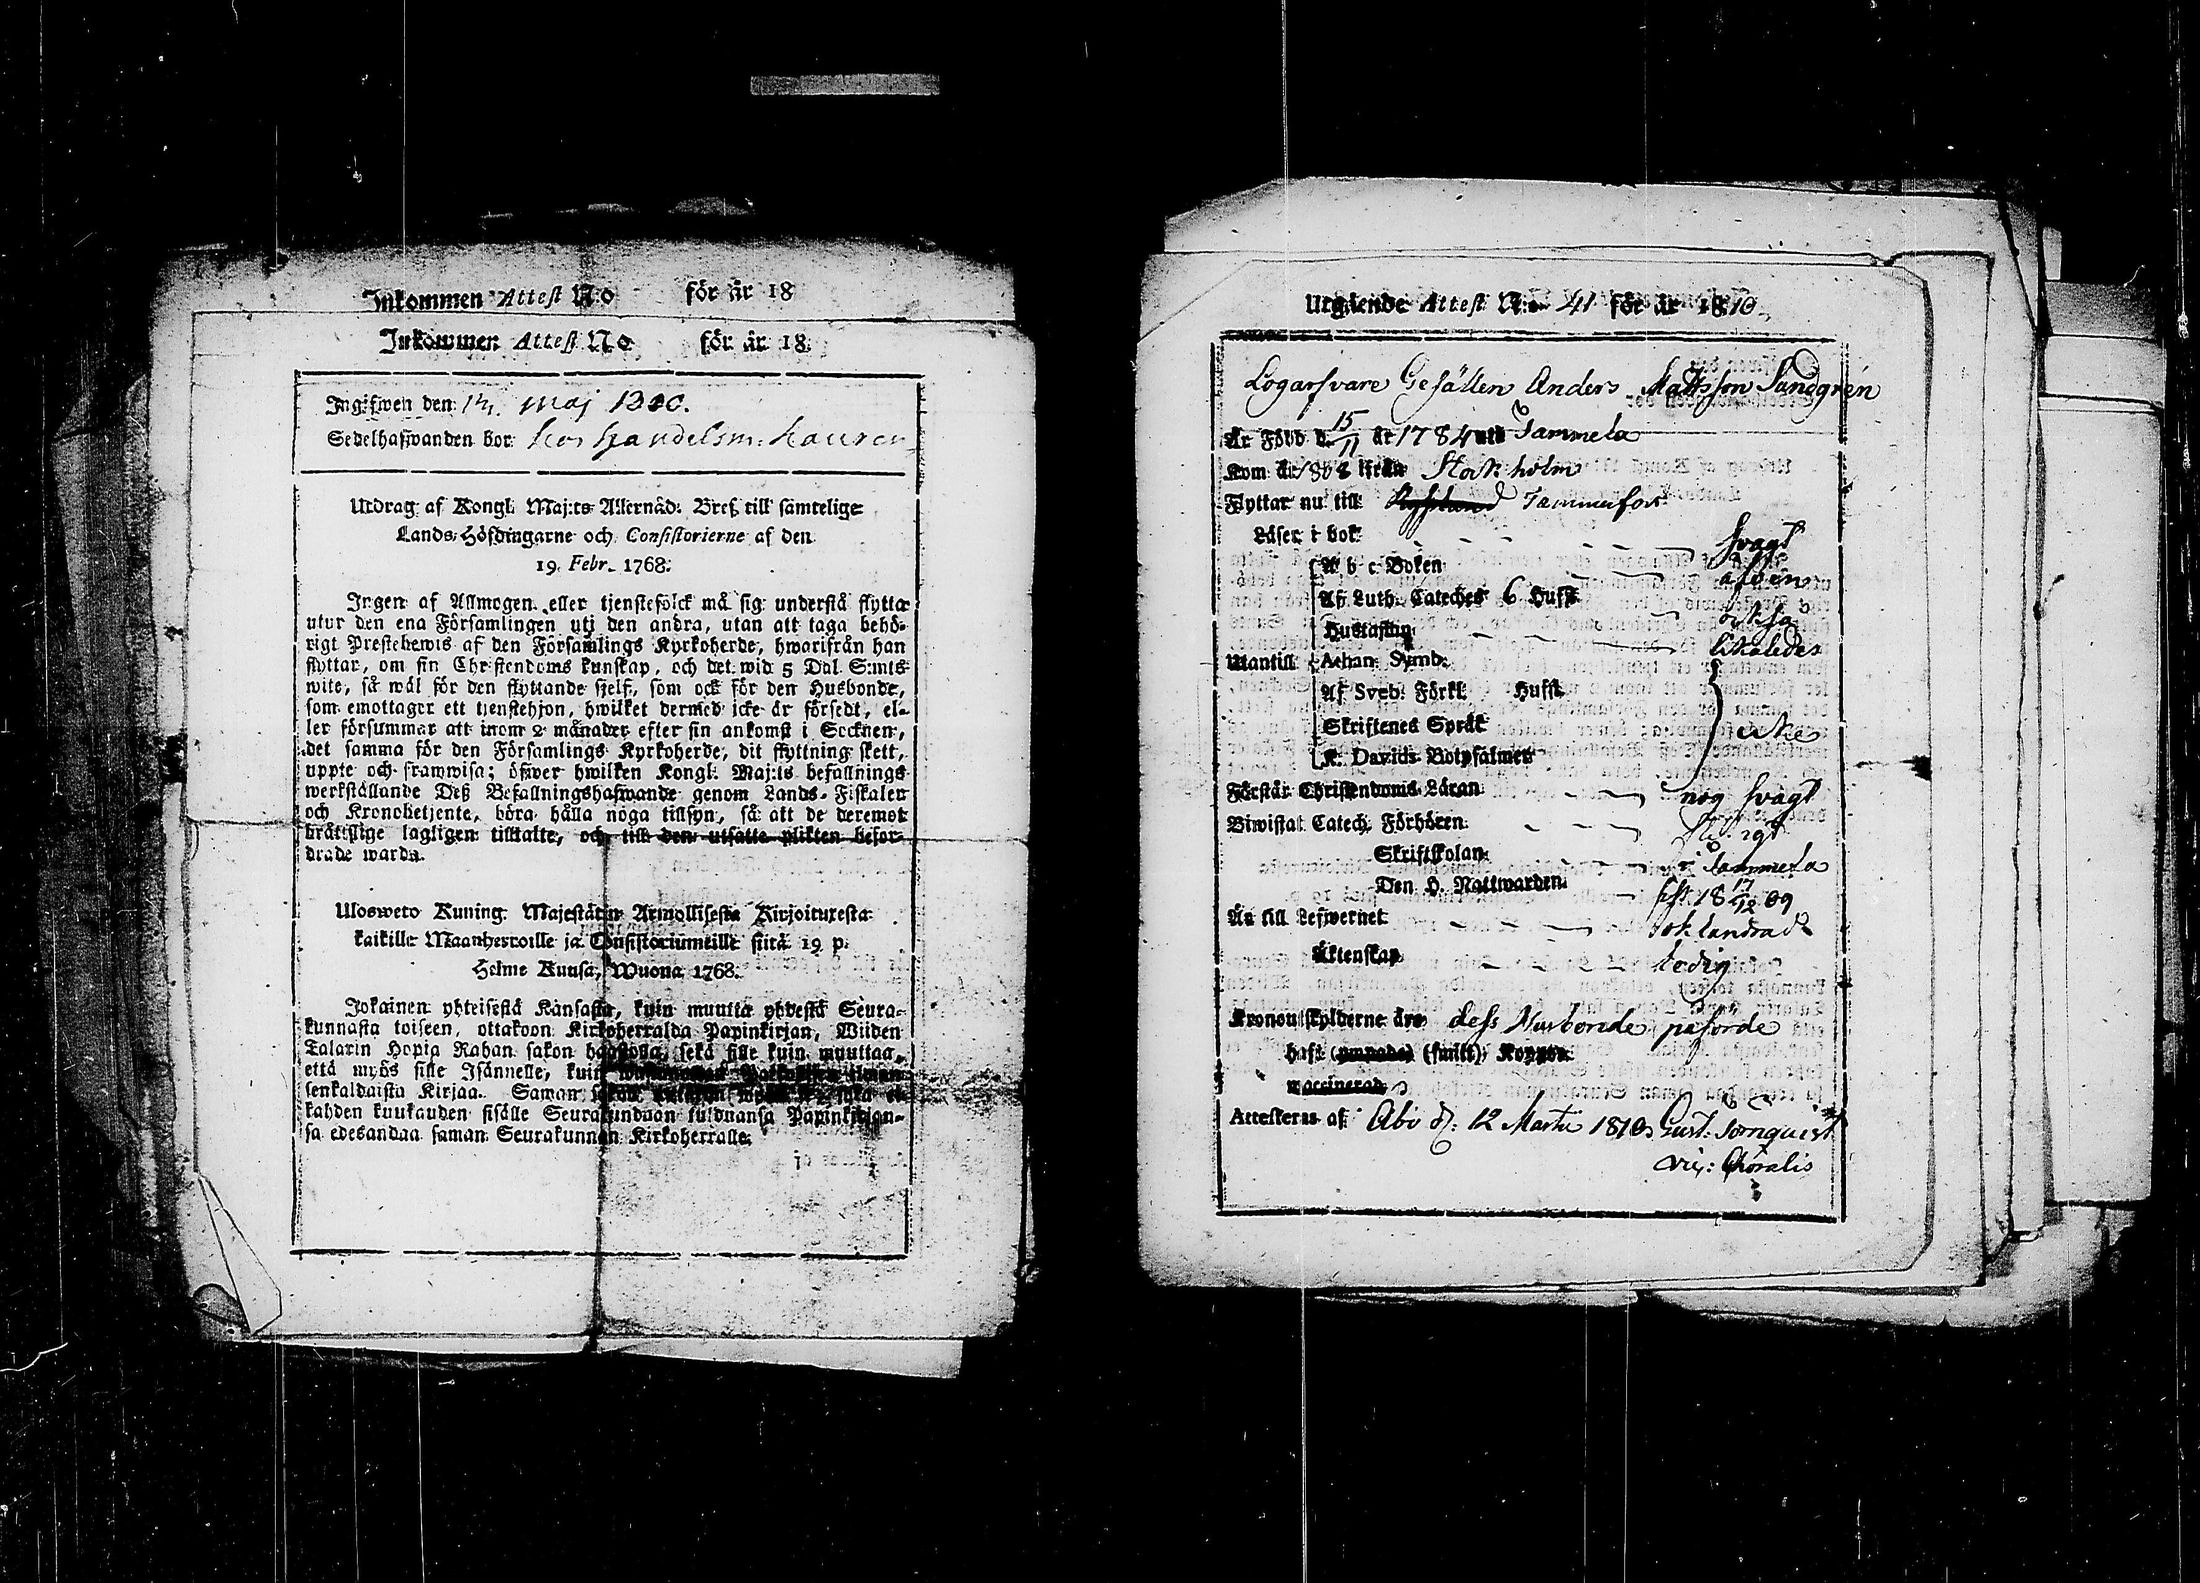 Inkommen Attest N:o för år 18
Inkommen Attest N:o för år 18
Ingifwen den 14. Maj 1810.
Sedelhafwanden bor hos Handelsm:
Utdrag af Kongl. Maj:ts Allernåd. Bref till samtelige
Lands-Höfdingarne och Consistorierne af den
19. Febr. 1768.
Ingen af Allmogen eller tjenstefolck må sig understå flytta
utur den ena Församlingen uti den andra, utan att taga behö-
rigt Prestebewis af den Församlings Kyrkoherde, hwarifrån han
flyttar, om sin Christendoms kunskap, och det wid 5 Dal. S:mts
wite, så wäl för den flyttande sjelf, som ock för den Husbonde,
som emottager ett tjenstehjon, hwilket dermed icke är försedt, el-
ler försummar att inom 2 månader efter sin ankomst i Socknen,
det samma för den Församlings Kyrkoherde, dit flyttning skett,
uppte och framwisa; öfwer hwilken Kongl. Maj:ts befallnings
werkställande Deß Befallningshafwande genom Lands-Fiskaler
och Kronobetjente, böra hålla noga tillsyn, så att de deremot
brättslige lagligen tilltalte, och till den utsatte plikten befor-
drade warda.
Ulosweto Kuning. Majestätin Armollisesta Kirjoituxesta
kaikille Maanherroille ja Consistoriumeille siitä 19 p.
Helme Kuusa, Wuona 1768.
Jokainen yhteisestä Kansasta, kuin muutta yhdestä Seura-
kunnasta toiseen, ottakoon Kirkoherralda Papinkirjan, Wiiden
Talarin Hopia Rahan sakon haastolla, sekä sille kuin muuttaa,
että myös sille Isännelle, kuin
senkaldaista Kirjaa. Saman
kahden kuukauden sisälle Seurakundaan tulduansa Papinkirjan-
sa edesandaa saman Seurakunnan Kirkoherralle.
Utgående Attest N:o 41 för år 1810.
Logarfvare Gesällen Anders Mattsson Sandgrén
Är Född d. 15/11 år 1784 uti Tammela
Kom år 1808 ifrån Stockholm
Flyttar nu till Tammerfors
Läser i bok svagt
A b c Boken äfven
Af Luth. Cateches 6 Hufst. också
Hustaflan likaledes
Utantill Athan. Symb.
Af Sveb. Förkl. Hufst.
Skriftenes Språk icke
K. Davids Botpsalmer
Förstår Christendoms Läran nog svagt
Biwistat Catech. Förhören
Skriftskolan i Tammela
Den H. Nattwarden sist 18 17/12 09
Är till Lefwernet oklandrad
Äktenskap ledig
Kronoutskylderne äro dess Husbonde påförde
haft (ympade) (smitt) Koppor
vaccinerad
Attesteras af Åbo d. 12 Martii 1810 Gust. Törnquist
Vic: Choralis